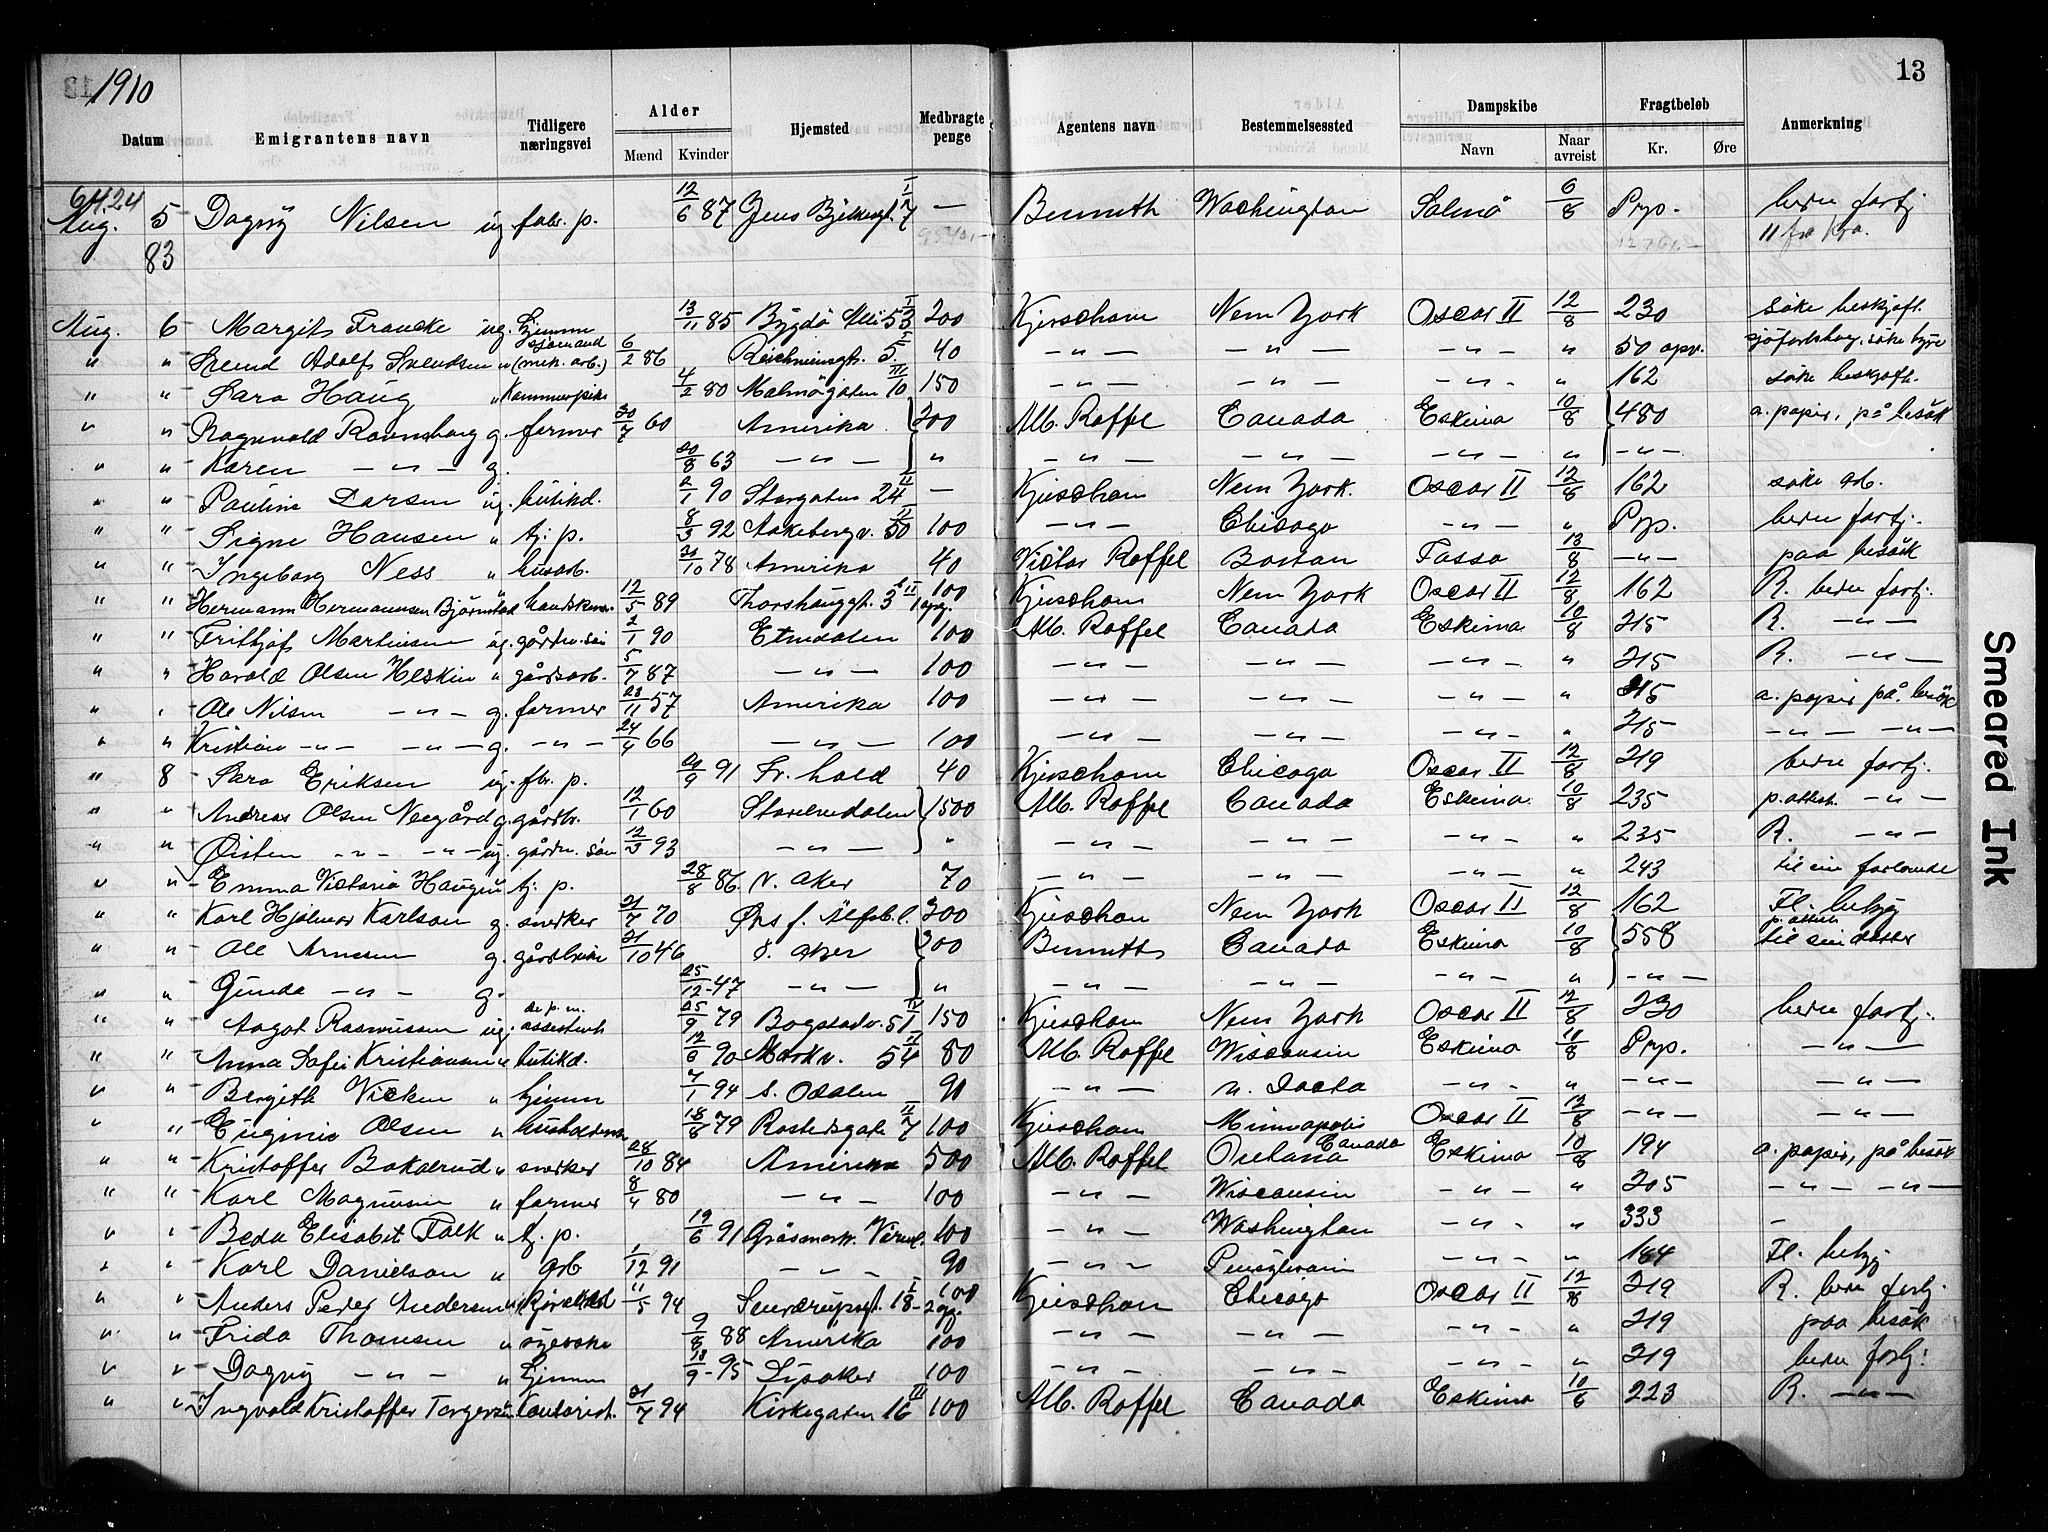 1910
13
Datum Emigrantens navn Tidligere næringsvei Alder Mænd Kvinder Hjemsted Medbragte penge Agentens navn Bestemmelsessted Dampskibe Navn Naar avreist Fragtbeløb Kr. Øre Anmerkning
6424
Aug. 5 Dagny Nilsen ug. fabr. p. 12/6 87 Jens Bjelkesgt. 7 — Bennett Washington Salmo 6/8 Prp. bedre fortj.
83 11 fra Kra.
Aug. 6 Margit Francke ug. hjemme 13/11 85 Bygdö Allé 53 200 Kjerschow New York Oscar II 12/8 230 söke beskjeft.
" " Svend Adolf Svendsen " sjömand (mek. arb.) 6/2 86 Reichweinsgt. 5 40 — " — — " — — " — " 50 opr. söke hyre
" " Sara Haug " Kammerpike 4/2 80 Malmögaten 10 150 — " — — " — — " — " 162 söke beskjeft.
" " Ragnvald Ravnsborg g. farmer 30/7 60 Amerika 200 Alb. Roffel Canada Eskimo 10/8 480 a. papir, på besök
" " Karen — " — g. 20/8 63 — " — " — " — — " — — " — " — " —
" " Pauline Larsen ug. butikd. 2/1 90 Storgaten 24 — Kjerschow New York. Oscar II 12/8 162 söke arb.
" " Signe Hansen " tj. p. 8/3 92 Aakebergv. 50 100 — " — Chicago — " — " Prp. bedre fortj.
" " Ingeborg Ness " husarb. 31/10 78 Amerika 40 Victor Roffel Boston Tasso 13/8 — " — paa besök
" " Hermann Hermannsen Björnstad " handskem. 12/5 89 Thorshauggt. 3 100 Kjerschow New York Oscar II 12/8 162 R. bedre fortj.
" " Fritjof Martinsen ug. gårdbr. sön 2/1 90 Etnedalen 100 Alb. Roffel Canada Eskimo 10/8 215 R. — " —
" " Harald Olsen Helskin " gårdsarb. 5/7 87 — " — 100 — " — — " — — " — " 215 R. — " —
" " Ole Nilsen — " — g. farmer 23/11 57 Amerika 100 — " — — " — — " — " 215 a. papir på besök
" " Kristian — " — — " — g. — " — 24/4 66 — " — 100 — " — — " — — " — " 215 — " — — " —
" 8 Sara Eriksen ug. fbr. p. 29/9 91 Fr. hald 40 Kjerschow Chicago Oscar II 12/8 219 bedre fortj.
" " Andreas Olsen Neegård g. gårdbr. 12/1 60 Storelvedalen 1500 Alb. Roffel Canada Eskimo 10/8 235 p. attest. — " —
" " Öisten — " — — " — ug. gårdbr. sön 12/3 93 — " — " — " — — " — — " — " 235 R. — " —
" " Emma Victoria Haugen tj. p. 28/8 86 V. Aker 70 — " — — " — — " — " 243 til sin forlovede
" " Karl Hjalmar Karlson g. snekker 21/7 70 Örs f. Älfsb. l. 200 Kjerschow New York Oscar II 12/8 162 Fl. betyg
" " Ole Arnesen g. gårdbruker 31/10 46 Ö. Aker 300 Bennett Canada Eskimo 10/8 558 p. attest til sin datter
" " Gunda — " — g. 25/12 47 — " — " — " — — " — — " — " — " —
" " Aagot Rasmussen ug. assistent 25/9 79 Bogstadv. 51 150 Kjerschow New York Oscar II 12/8 230 bedre fortj.
" " Anna Sofie Kristiansen " butikd. 12/6 90 Markv. 54 80 Alb. Roffel Wisconsin Eskimo 11/8 Prp. — " —
" " Bergith Vicken " hjemm 7/1 94 S. Odalen 90 — " — n. Dacota — " — " — " — — " —
" " Euginie Olsen " husholderske 18/8 79 Rostedsgate 7 100 Kjerschow Minneapolis Oscar II 12/8 — " — — " —
" " Kristoffer Bakalrud " snekker 28/10 84 Amerika 500 Alb. Roffel Canada Eskimo 10/8 194 a. papir, på besök
" " Karl Magnusen " farmer 8/4 80 — " — 100 — " — Wisconsin — " — " 205 — " — — " —
" " Beda Elisabet Falk " tj. p. 19/6 91 Gräsmark. Värml. 100 — " — Washington — " — " 333 —
" " Karl Danielson " arb 1/12 91 — " — 90 — " — Pensylvani — " — " 184 Fl. betyg
" " Anders Peder Andersen " 11/5 94 Sverdrupsgt. 18 100 Kjerschow Chicago Oscar II 12/8 219 R. bedre fortj.
" " Frida Thomsen " syerske 9/8 88 Amerika 100 — " — — " — — " — " 219 paa besök
" " Dagny — " — " hjemm 13/9 95 Lysaker 100 — " — — " — — " — " 219 bedre fortj.
" " Ingvald Kristoffer Torgersen Kontorist. 21/7 94 Kirkegaten 16 100 Alb. Roffel Canada Eskimo 10/8 223 R. — " —
Smeared Ink